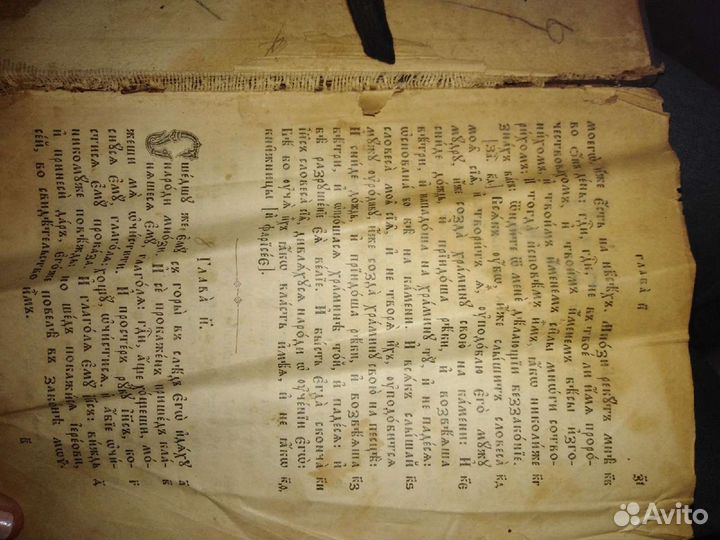 ГЛАВА̀ И҃ З҃І
моегѡ̀, и҆́же є҆́сть на нб҃сѣ́хъ. Мно́зи рекꙋ́тъ мнѣ̀ к҃в
гдⷭ҇и, гдⷭ҇и, не въ твое́ ли и҆́мѧ проро́-
чествовахомъ, и҆ твои́мъ и҆́менемъ бѣ́сы и҆зго-
ни́хомъ, и҆ твои́мъ и҆́менемъ си̑лы мнѡ́ги сотво-
ри́хомъ; и҆ тогда̀ и҆сповѣ́мъ и҆̀мъ, ꙗ҆́кѡ николи́же к҃г
зна́хъ ва́съ: ѿиди́те ѿ менє̀ дѣ́лающїи беззако́нїе.
[За҄ к҃д] Всѧ́къ ᲂу҆̀бѡ, и҆́же слы́шитъ словеса̀ к҃д
моѧ̑ сїѧ̑, и҆ твори́тъ ѧ҆̀, ᲂу҆подо́блю є҆го̀ мꙋ́жꙋ
мꙋ́дрꙋ, и҆́же созда̀ хра́минꙋ свою̀ на ка́мени: И҆ к҃є
сни́де до́ждь, и҆ прїидо́ша рѣ́ки, и҆ возвѣ́ѧша
вѣ́три, и҆ нападо́ша на хра́минꙋ тꙋ̀: и҆ не паде́сѧ:
ѡ҆снована бо бѣ̀ на ка́мени. И҆ всѧ́къ слы́шай к҃ѕ
словеса̀ моѧ̑ сїѧ̑, и҆ не творѧ̀ и҆́хъ, ᲂу҆подо́битсѧ
мꙋ́жꙋ ᲂу҆ро́дивꙋ, и҆́же созда̀ хра́минꙋ свою̀ на песцѣ̀:
И҆ сни́де до́ждь, и҆ прїидо́ша рѣ́ки, и҆ возвѣ́ѧша к҃з
вѣ́три, и҆ ѡ҆про́шасѧ хра́минѣ то́й, и҆ паде́сѧ: и҆
бѣ̀ разрꙋше́нїе є҆ѧ̀ ве́лїе. И҆ бы́сть є҆гда̀ сконча̀ к҃и
і҆и҃съ словеса̀ сїѧ̑, дивлѧ́хꙋсѧ наро́ди ѡ҆ ᲂу҆че́нїи є҆гѡ̀:
Бѣ́ бо ᲂу҆ча̀ и҆̀хъ ꙗ҆́кѡ вла́сть и҆мѣ́ѧ, и҆ не ꙗ҆́кѡ к҃ѳ
кни́жницы [и҆ фарїсе́є].
ГЛАВА̀ И҃.
Сше́дшꙋ же є҆мꙋ̀ съ горы̀, въ слѣ́дъ є҆гѡ̀ и҆дѧ́хꙋ а҃
наро́ди мно́зи. И҆ сѐ прокаже́нъ прише́дъ кла́- в҃
нѧшесѧ є҆мꙋ̀, глаго́лѧ: гдⷭ҇и, а҆́ще хо́щеши, мо́-
жеши мѧ̀ ѡ҆чи́стити. И҆ просте́ръ рꙋ́кꙋ і҆и҃съ, ко- г҃
снꙋ́сѧ є҆мꙋ̀, глаго́лѧ: хощꙋ̀, ѡ҆чи́стисѧ. и҆ а҆́бїе ѡ҆чи́-
стисѧ є҆мꙋ̀ прока́за. И҆ глаго́ла є҆мꙋ̀ і҆и҃съ: ви́ждь д҃
никомꙋ́же повѣ́ждь: но ше́дъ покажи́сѧ і҆ере́ови,
и҆ принесѝ да́ръ, є҆го́же повелѣ̀ въ зако́нѣ мѡѷ-
се́й, во свидѣ́тельство и҆̀мъ.
Avito